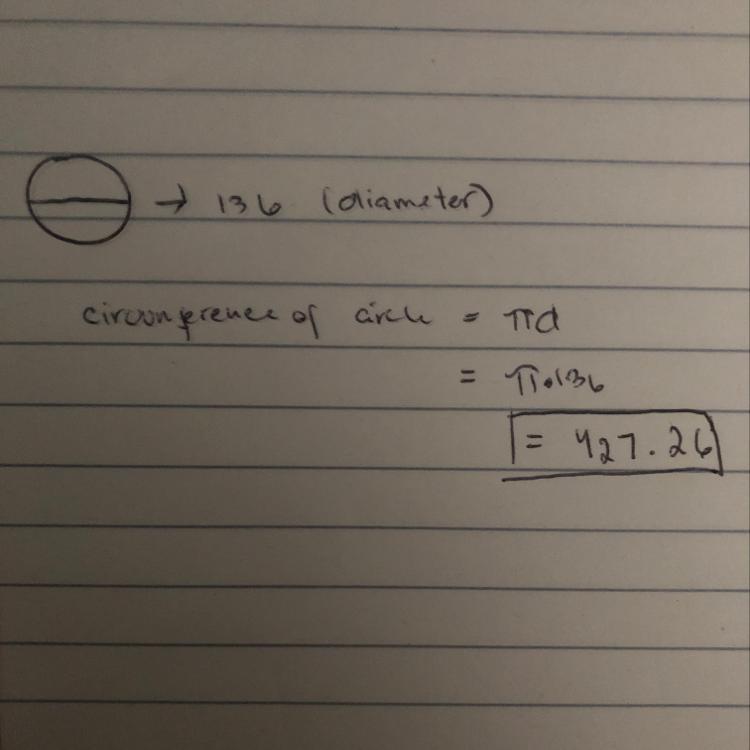 → 136 (diameter)
circumference of circle = πd
= π•136
= 427.26